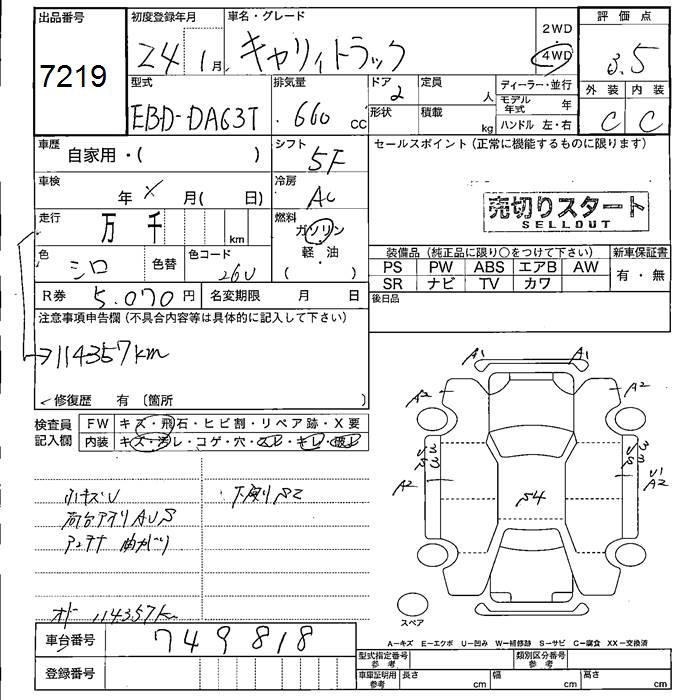 出品番号 初度登録年月 車名・グレード 2WD 評価点
7219 24年 1月 キャリィトラック 4WD 3.5
型式 排気量 ドア 定員 ディーラー・並行 外装 内装
EBD-DA63T 660 cc 2 人 モデル年式 年 C C
形状 積載 kg ハンドル 左・右
車歴 自家用・( ) シフト 5F セールスポイント(正常に機能するものに限ります)
車検 年 X 月( 日) 冷房 AC
売切りスタート
SELLOUT
走行 万 千 km 燃料 ガソリン
軽・油
( )
色 シロ 色替 色コード 26U
装備品(純正品に限り○をつけて下さい) 新車保証書
PS PW ABS エアB AW 有・無
SR ナビ TV カワ
R券 5.070円 名変期限 月 日 後日品
注意事項申告欄(不具合内容等は具体的に記入して下さい)
→114357km
修復歴 有〔箇所
検査員記入欄 FW キズ・飛石・ヒビ割・リペア跡・X要
内装 キズ・汚レ・コゲ・穴・スレ・キレ・破レ
小キズU 下廻りS2
荷台アオリAUS
アンテナ 曲がり
オド 114357km
A1 A1
A2 A2
A2 U1
A2
S4
スペア
A-キズ E-エクボ U-凹み W-補修跡 S-サビ C-腐食 XX-交換済
車台番号 749818
型式指定番号 参考 類別区分番号 参考
登録番号 車庫証明用 参考 長さ cm 幅 cm 高さ cm